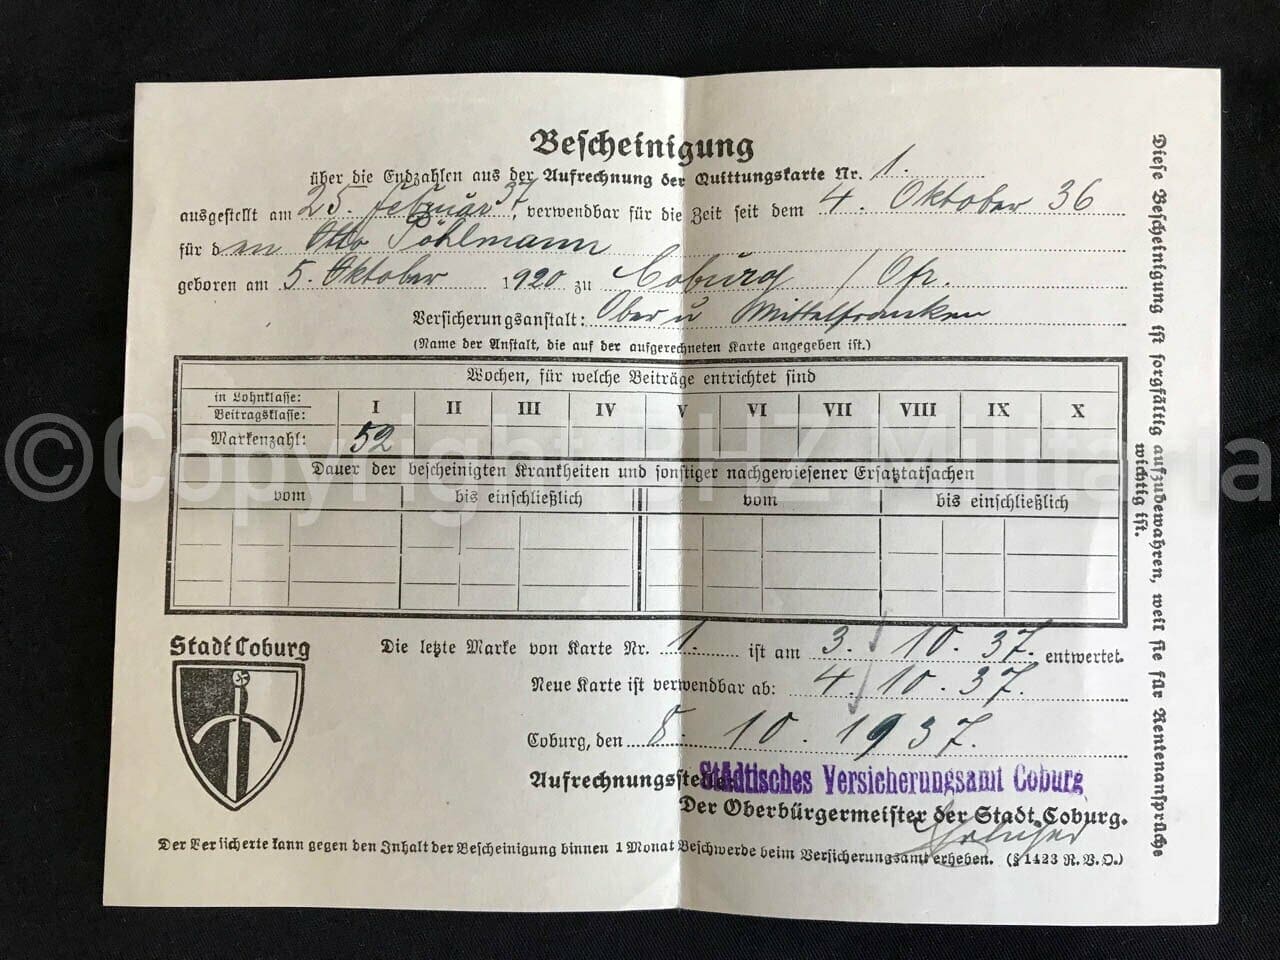 Bescheinigung
über die Endzahlen aus der Aufrechnung der Quittungskarte Nr. 1.
ausgestellt am 25. Februar 37, verwendbar für die Zeit seit dem 4. Oktober 36
für den Otto Pöhlmann
geboren am 5. Oktober 1920 zu Coburg / Ofr.
Versicherungsanstalt: Ober u Mittelfranken
(Name der Anstalt, die auf der aufgerechneten Karte angegeben ist.)
Wochen, für welche Beiträge entrichtet sind
in Lohnklasse:
Beitragsklasse:
I II III IV V VI VII VIII IX X
Markenzahl: 52
Dauer der bescheinigten Krankheiten und sonstiger nachgewiesener Ersatztatsachen
vom bis einschließlich vom bis einschließlich
Stadt Coburg
Die letzte Marke von Karte Nr. 1. ist am 3. 10. 37. entwertet.
Neue Karte ist verwendbar ab: 4. 10. 37.
Coburg, den 8. 10. 1937.
Aufrechnungsstelle:
Städtisches Versicherungsamt Coburg
Der Oberbürgermeister der Stadt Coburg.
Der Versicherte kann gegen den Inhalt der Bescheinigung binnen 1 Monat Beschwerde beim Versicherungsamt erheben. (§ 1423 R. V. O.)
Diese Bescheinigung ist sorgfältig aufzubewahren, weil sie für Rentenansprüche
wichtig ist.
©Copyright BHZ Militaria